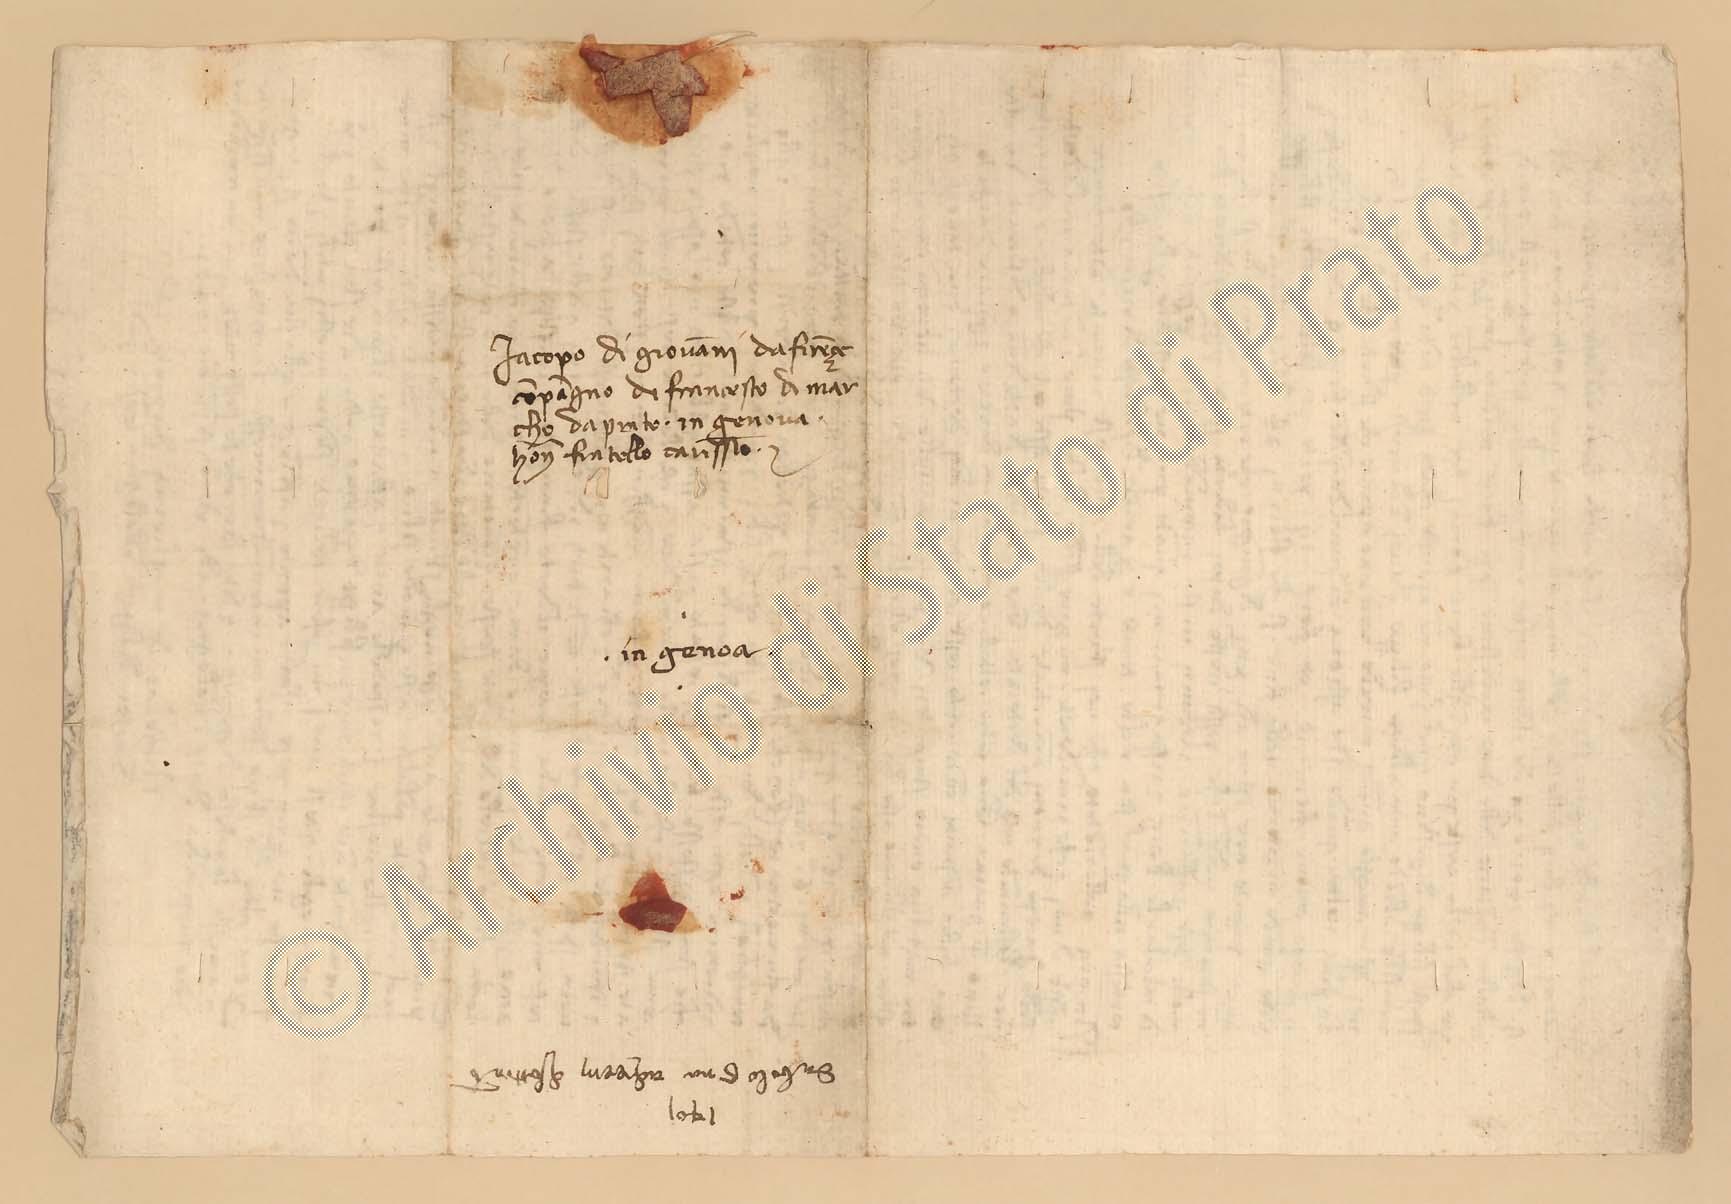 Jacopo di giovāni da firēçe
cōpāgno de francesco di mar
cho da prato · in genova ·
hon fratello carissimo ·
· in genoa ·
1401
© Archivio di Stato di Prato